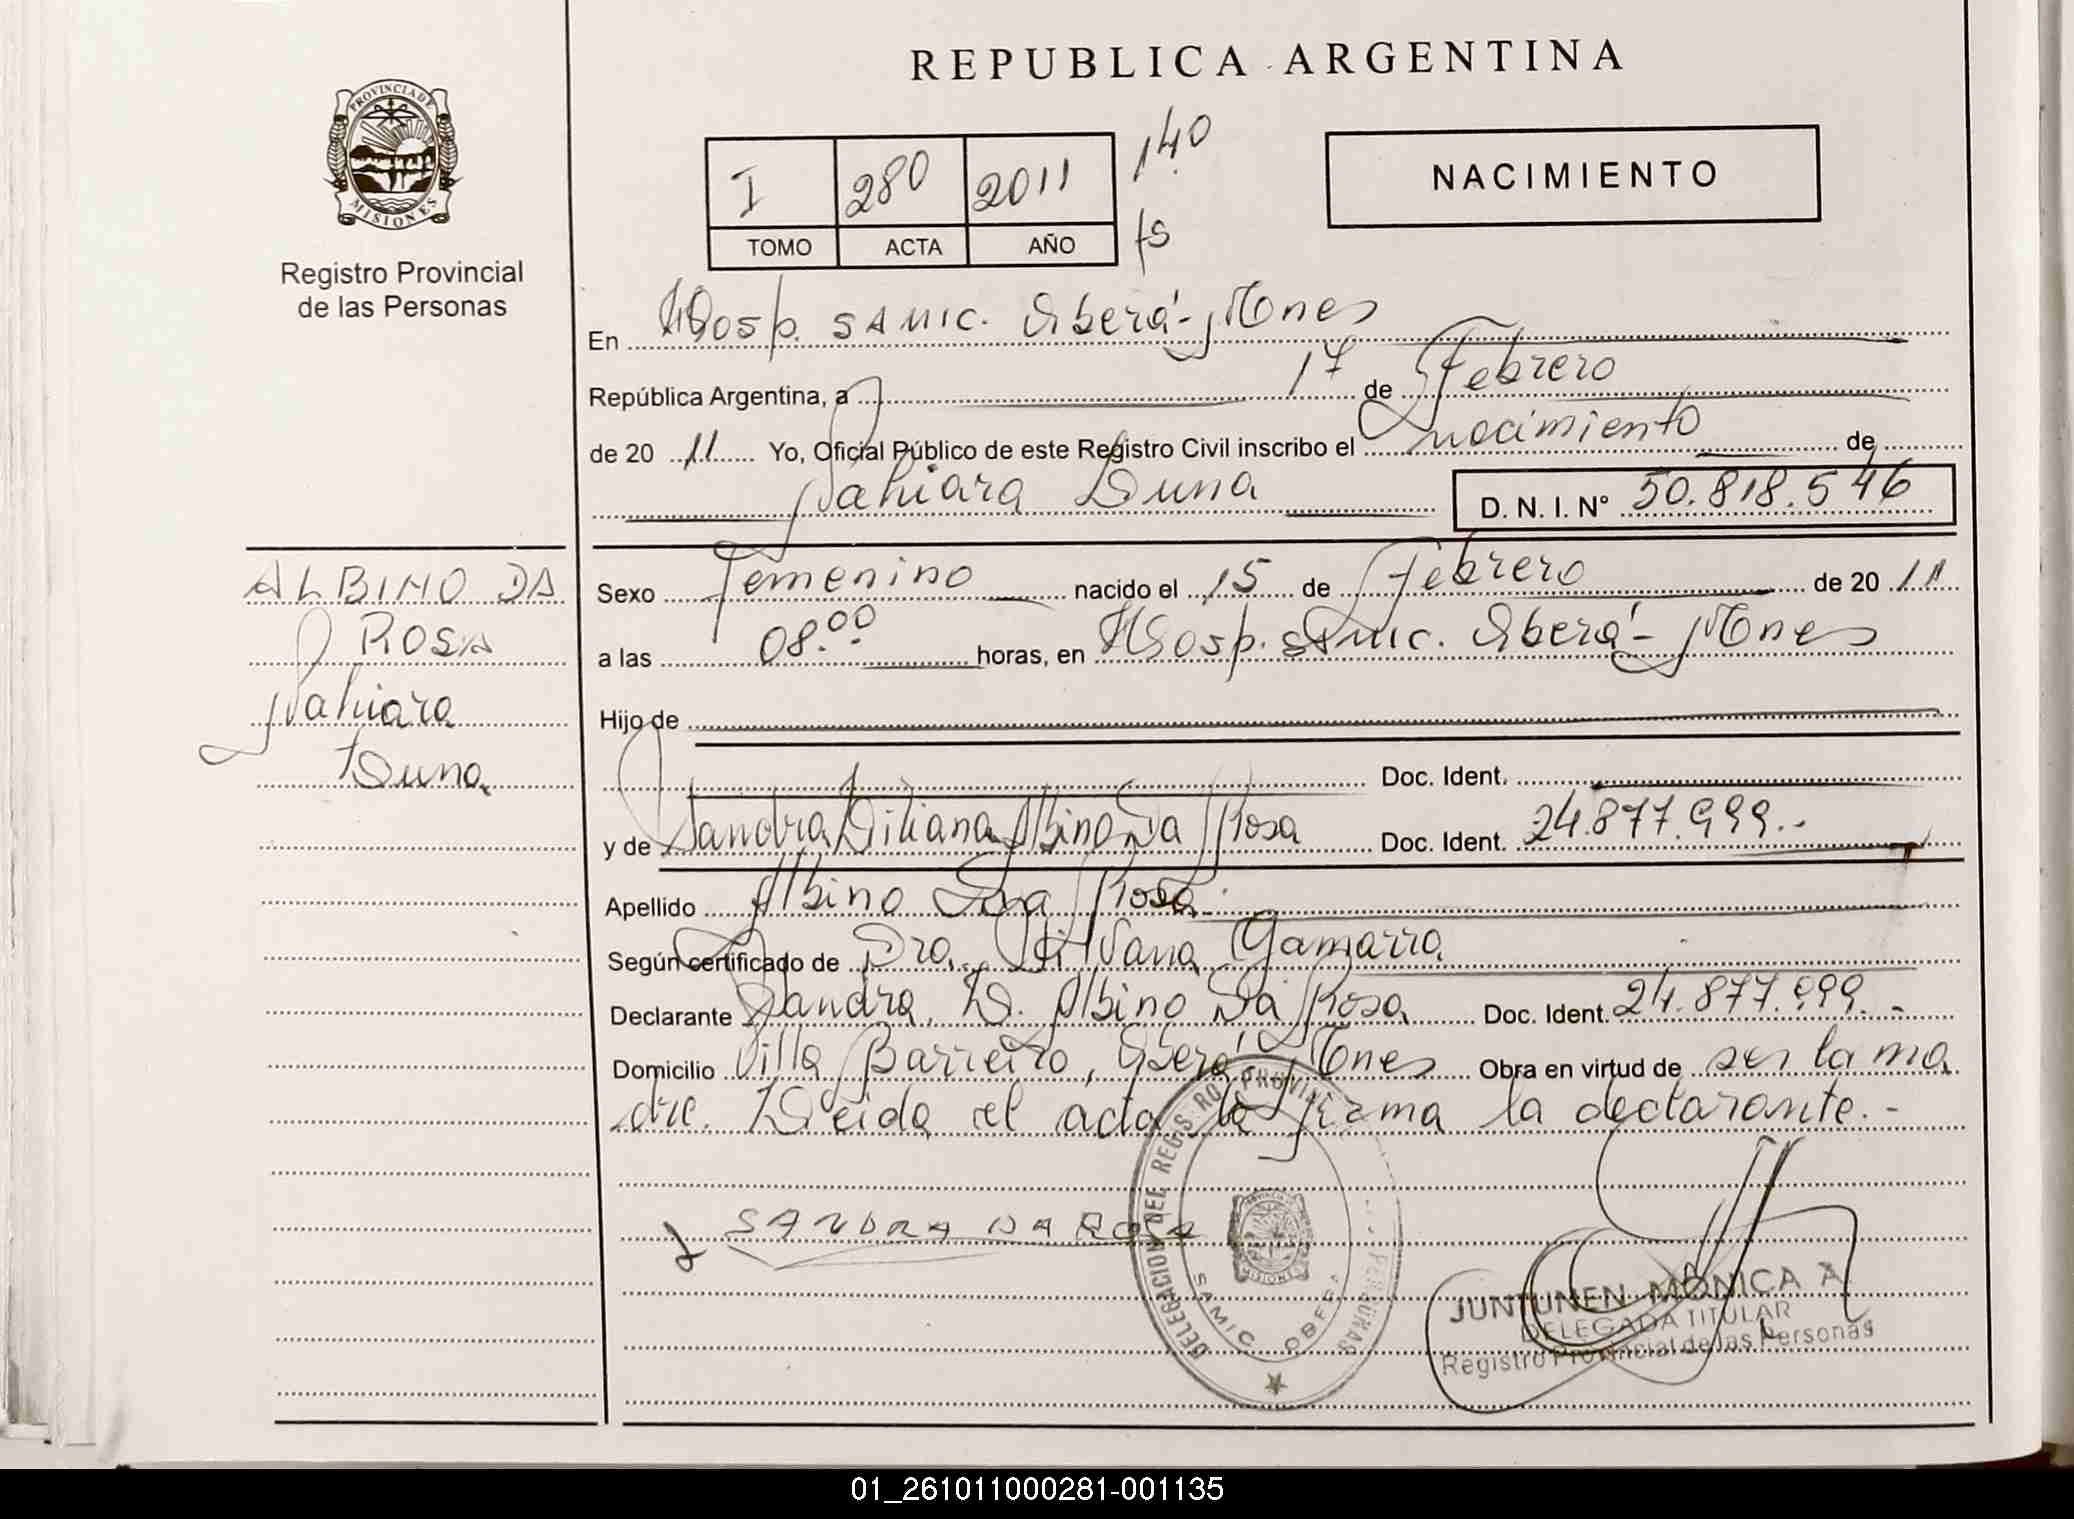 REPUBLICA ARGENTINA
PROVINCIA DE
MISIONES
Registro Provincial
de las Personas
I 280 2011 140
TOMO ACTA AÑO fs
NACIMIENTO
En Hosp. SAMIC. Oberá - Mnes
República Argentina, a 17 de Febrero
de 20 11 Yo, Oficial Público de este Registro Civil inscribo el nacimiento de
Nahiara Luna D. N. I. N° 50.818.546
ALBINO DA
ROSA
Nahiara
Luna
Sexo Femenino nacido el 15 de Febrero de 20 11
a las 08:00 horas, en Hosp. SAMIC. Oberá - Mnes
Hijo de
Doc. Ident.
y de Sandra Liliana Albino Da Rosa Doc. Ident. 24.877.999.-
Apellido Albino Da Rosa.
Según certificado de Dra. Silvana Gamarra
Declarante Sandra L. Albino Da Rosa Doc. Ident. 24.877.999.-
Domicilio Villa Barreiro, Oberá Mnes Obra en virtud de ser la ma
dre. Leida el acta la firma la declarante.-
SANDRA DA ROSA
DELEGACION DEL REGISTRO PROVINCIAL PERSONAS
SAMIC OBERA
MISIONES
JUNTUNEN MONICA A.
DELEGADA TITULAR
Registro Provincial de las Personas
01_261011000281-001135